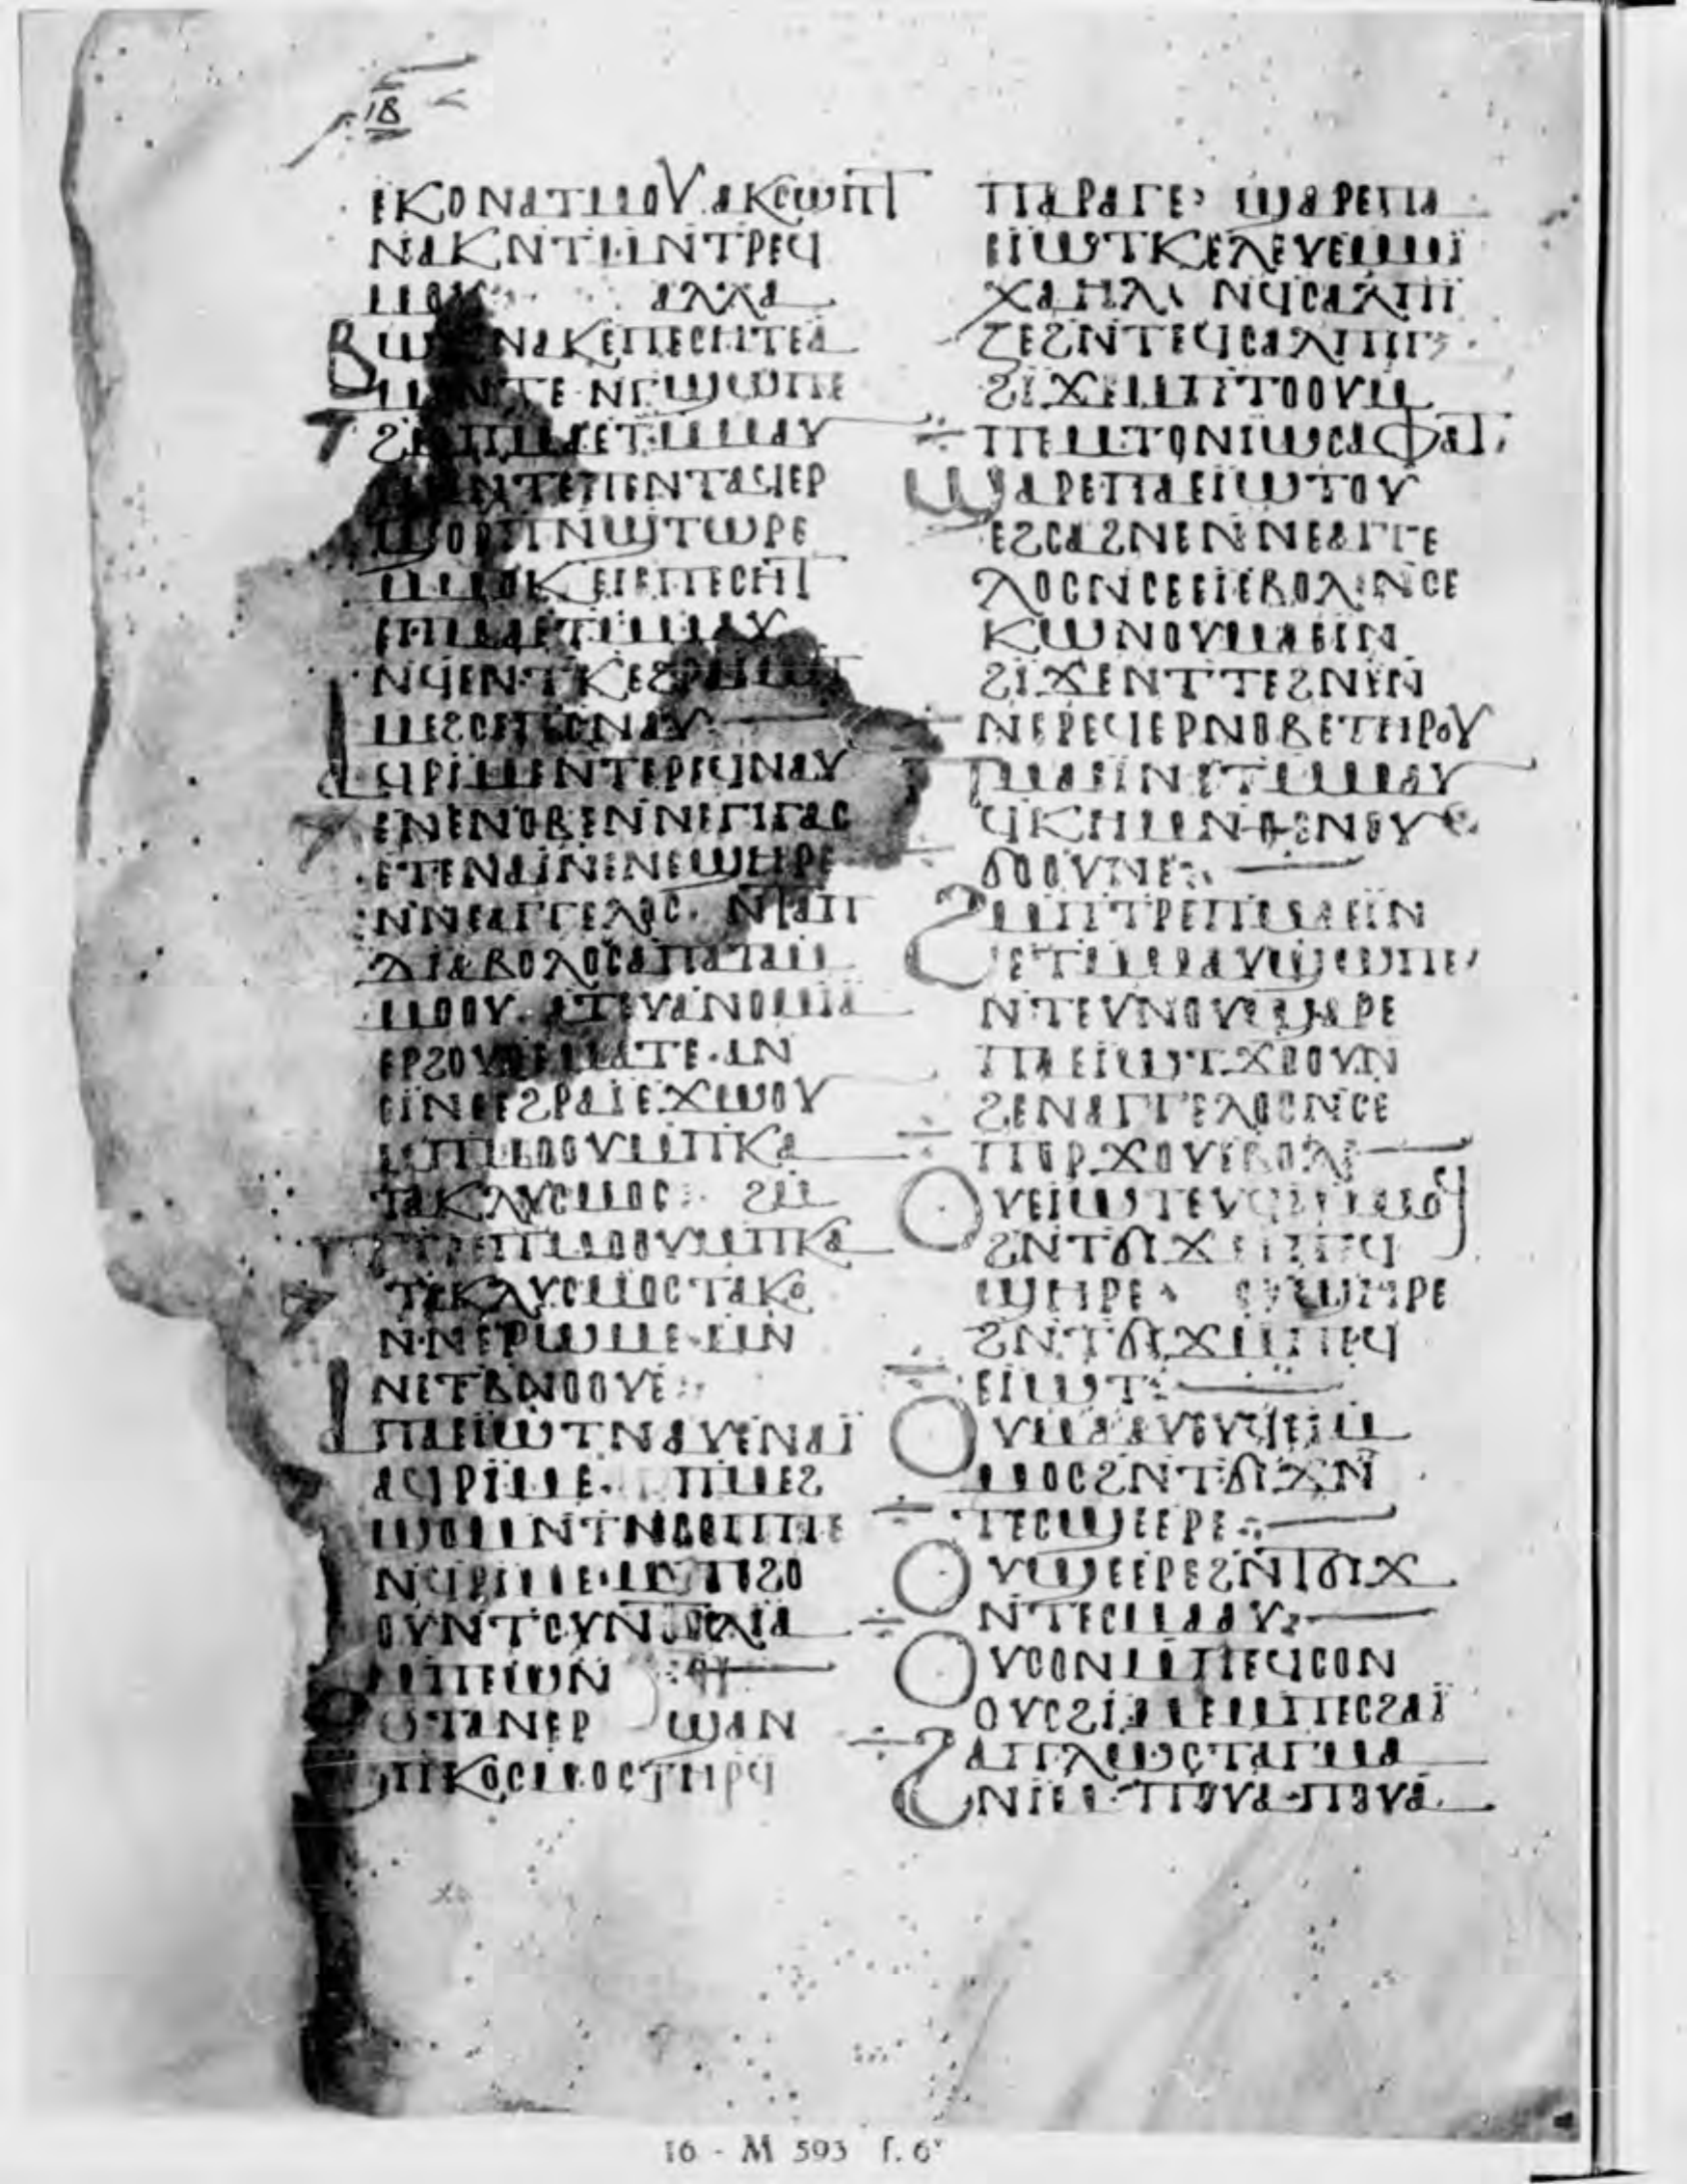 18
ⲉⲓⲕⲟⲛⲁⲧⲙⲟⲩ ⲁⲕⲥⲱⲡⲧ
ⲛⲁⲕⲛⲧⲙⲛⲧⲣⲉϥ
ⲁⲗⲗⲁ
ⲛⲁⲕⲉⲡⲉⲥⲏⲧⲉⲁ
ⲙⲛⲧⲉ ⲛⲅϣⲱⲡⲉ
ϩⲙⲡⲙⲁⲉⲧⲙⲙⲁⲩ
ϣⲁⲛⲧⲉⲡⲉⲛⲧⲁϥⲉⲣ
ϣⲟⲣⲡⲛϣⲧⲱⲣⲉ
ⲙⲙⲟⲕ ⲉⲓⲉⲡⲉⲥⲏⲧ
ⲉⲡⲙⲁⲉⲧⲙⲙⲁⲩ
ⲛϥⲉⲛⲧⲕⲉϩⲣⲁⲓ
ⲙⲉϩⲥⲉⲡⲥⲛⲁⲩ
ⲁϥⲣⲓⲙⲉⲛⲧⲉⲣⲉϥⲛⲁⲩ
ⲉⲛⲉⲛⲟⲃⲉⲛⲛⲉⲅⲓⲅⲁⲥ
ⲉⲧⲉⲛⲁⲓⲛⲉⲛⲉϣⲏⲣⲉ
ⲛⲛⲉⲁⲅⲅⲉⲗⲟⲥ. ⲛⲧⲁⲡ
ⲇⲓⲁⲃⲟⲗⲟⲥⲁⲡⲁⲧⲁⲙ
ⲙⲟⲟⲩ. ⲁⲧⲉⲩⲁⲛⲟⲙⲓⲁ
ⲉⲣϩⲟⲩⲟⲉⲙⲁⲧⲉ. ⲁⲛ
ⲉⲓⲛⲉⲉϩⲣⲁⲓⲉϫⲱⲟⲩ
ⲙⲡⲙⲟⲟⲩⲙⲡⲕⲁ
ⲧⲁⲕⲗⲩⲥⲙⲟⲥ: ϩⲙ
ⲡⲧⲣⲉⲡⲙⲟⲟⲩⲙⲡⲕⲁ
ⲧⲁⲕⲗⲩⲥⲙⲟⲥⲧⲁⲕⲟ
ⲛⲛⲉⲣⲱⲙⲉ ⲙⲛ
ⲛⲉⲧⲃⲛⲟⲟⲩⲉ:
ⲁⲡⲁⲉⲓⲱⲧⲛⲁⲩⲉⲛⲁⲓ
ⲁϥⲣⲓⲙⲉ. ⲡⲙⲉϩ
ϣⲟⲙⲛⲧⲛⲥⲟⲡⲡⲉ
ⲛϥⲣⲓⲙⲉ ⲙⲡϩⲟ
ⲟⲩⲛⲧⲥⲩⲛⲧⲉⲗⲓⲁ
ⲙⲡⲉⲱⲛ
ⲟⲧⲁⲛⲉⲣ ϣⲁⲛ
ⲡⲕⲟⲥⲙⲟⲥⲧⲏⲣϥ
ⲡⲁⲣⲁⲅⲉ: ϣⲁⲣⲉⲡⲁ
ⲉⲓⲱⲧⲕⲉⲗⲉⲩⲉⲙⲙⲓ
ⲭⲁⲏⲗ: ⲛϥⲥⲁⲗⲡⲓ
ⲍⲉϩⲛⲧⲉϥⲥⲁⲗⲡⲓⲅⲝ
ϩⲓϫⲉⲙⲡⲧⲟⲟⲩⲙ
ⲡⲉⲙⲧⲟⲛⲓⲱⲥⲁⲫⲁⲧ.
ϣⲁⲣⲉⲡⲁⲉⲓⲱⲧⲟⲩ
ⲉϩⲥⲁϩⲛⲉⲛⲛⲉⲁⲅⲅⲉ
ⲗⲟⲥⲛⲥⲉⲉⲓⲉⲃⲟⲗ ⲛⲥⲉ
ⲕⲱⲛⲟⲩⲙⲁⲉⲓⲛ
ϩⲓϫⲉⲛⲧⲧⲉϩⲛⲏ
ⲛⲉⲣⲉϥⲉⲣⲛⲟⲃⲉⲧⲏⲣⲟⲩ
ⲡⲙⲁⲉⲓⲛⲉⲧⲙⲙⲁⲩ
ϭⲟⲟⲩⲛⲉ:
ϩⲙⲡⲧⲣⲉⲡⲙⲁⲉⲓⲛ
ⲉⲧⲙⲙⲁⲩϣⲱⲡⲉ
ⲛⲧⲉⲩⲛⲟⲩϣⲁⲣⲉ
ⲡⲁⲉⲓⲱⲧ ϫⲟⲟⲩⲛ
ϩⲉⲛⲁⲅⲅⲉⲗⲟⲥⲛⲥⲉ
ⲡⲟⲣϫⲟⲩⲉⲃⲟⲗ:
ⲟⲩⲉⲓⲱⲧⲉⲩϥⲓⲙⲙⲟϥ
ϩⲛⲧϭⲓϫⲙⲡⲉϥ
ϣⲏⲣⲉ: ⲟⲩϣⲏⲣⲉ
ϩⲛⲧϭⲓϫⲙⲡⲉϥ
ⲉⲓⲱⲧ:
ⲟⲩⲙⲁⲁⲩⲉⲩϥⲉⲓⲙ
ⲙⲟⲥϩⲛⲧϭⲓϫⲛ
ⲧⲉⲥϣⲉⲉⲣⲉ:
ⲟⲩϣⲉⲉⲣⲉϩⲛⲧϭⲓϫ
ⲛⲧⲉⲥⲙⲁⲁⲩ:
ⲟⲩⲥⲟⲛⲙⲡⲉϥⲥⲟⲛ
ⲟⲩⲥϩⲓⲙⲉⲙⲡⲉⲥϩⲁⲓ
ϩⲁⲡⲗⲱⲥⲧⲁⲅⲙⲁ
ⲛⲓⲙ. ⲡⲟⲩⲁ ⲡⲟⲩⲁ
16 - M 593 f. 6ᵛ